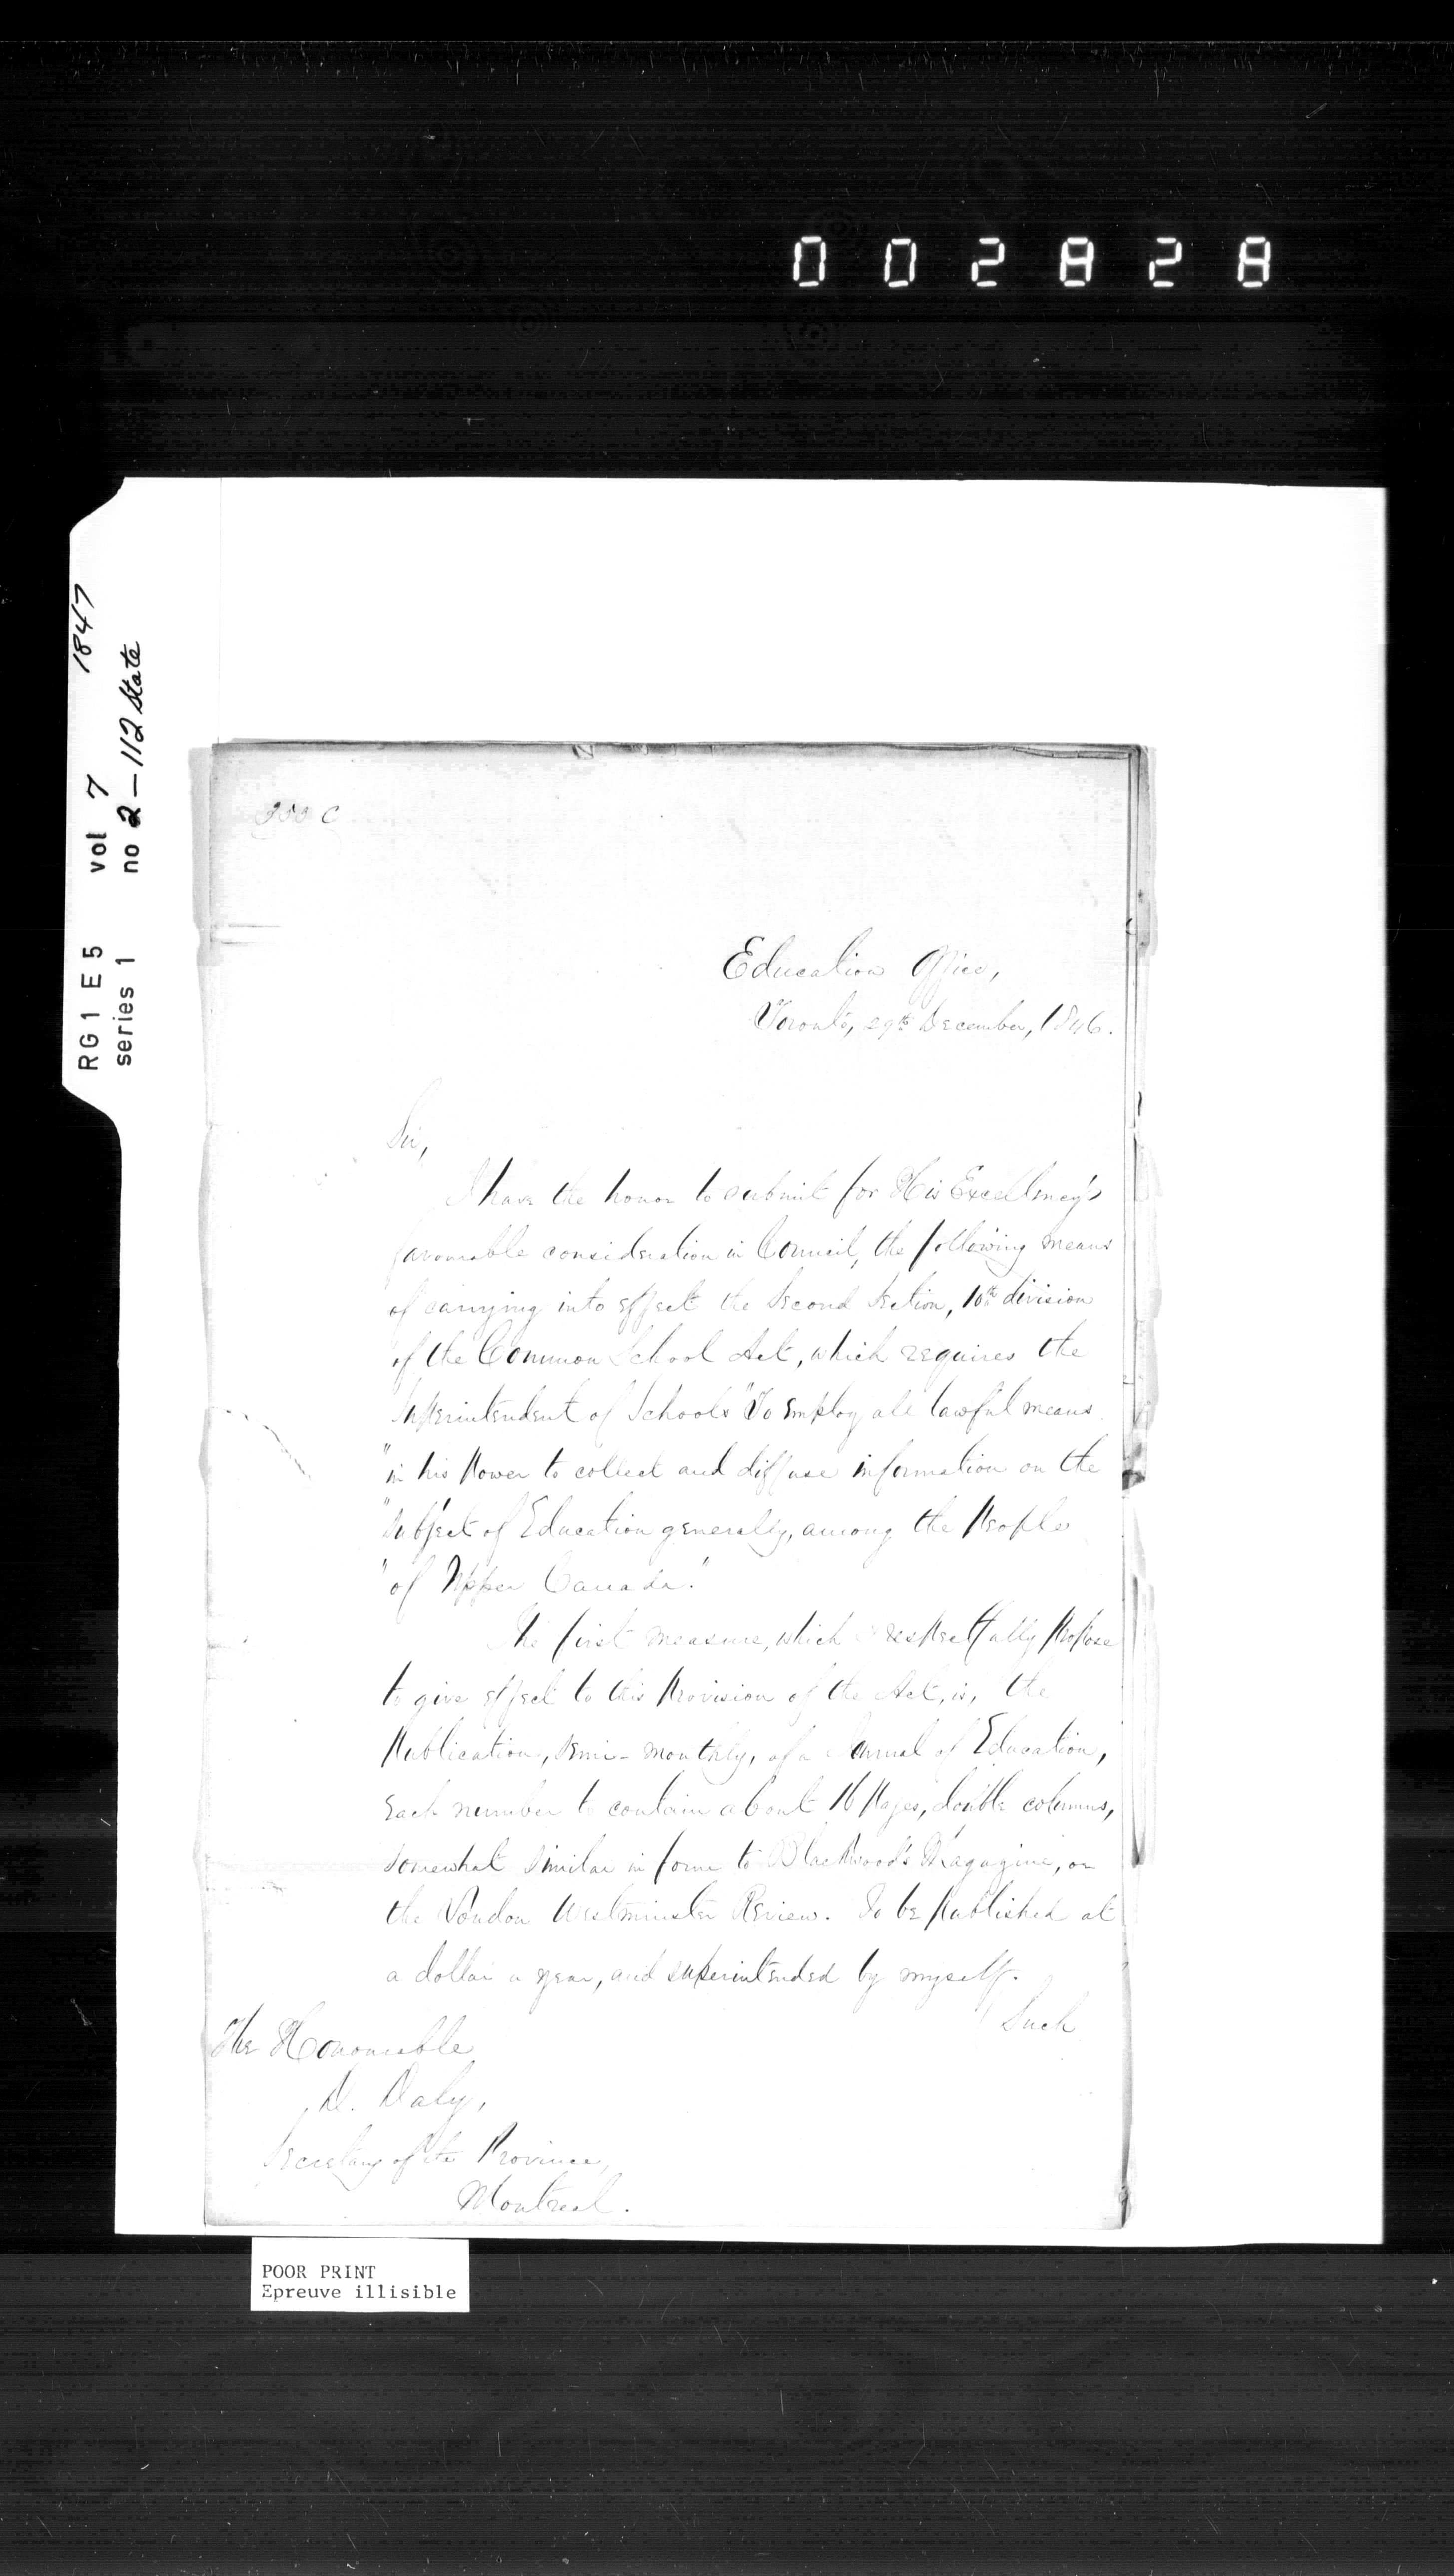 002828
RG1 E5 vol 7 1847
series 1 no 2-112 State
C
Education Office,
Toronto, 29th December, 1846.
Sir,
I have the honor to submit for His Excellency's
favourable consideration in Council, the following means
of carrying into effect the Second Section, 10th division
of the Common School Act, which requires the
Superintendent of Schools "To employ all lawful means
"in his power to collect and diffuse information on the
"subject of Education generally, among the People
"of Upper Canada."
The first measure, which I respectfully propose
to give effect to this Provision of the Act, is, the
Publication, semi-monthly, of a Journal of Education,
each number to contain about 16 Pages, double columns,
somewhat similar in form to Blackwood's Magazine, or
the London Westminster Review. To be published at
a dollar a year, and superintended by myself.
Such
The Honourable
D. Daly,
Secretary of the Province,
Montreal.
POOR PRINT
Epreuve illisible